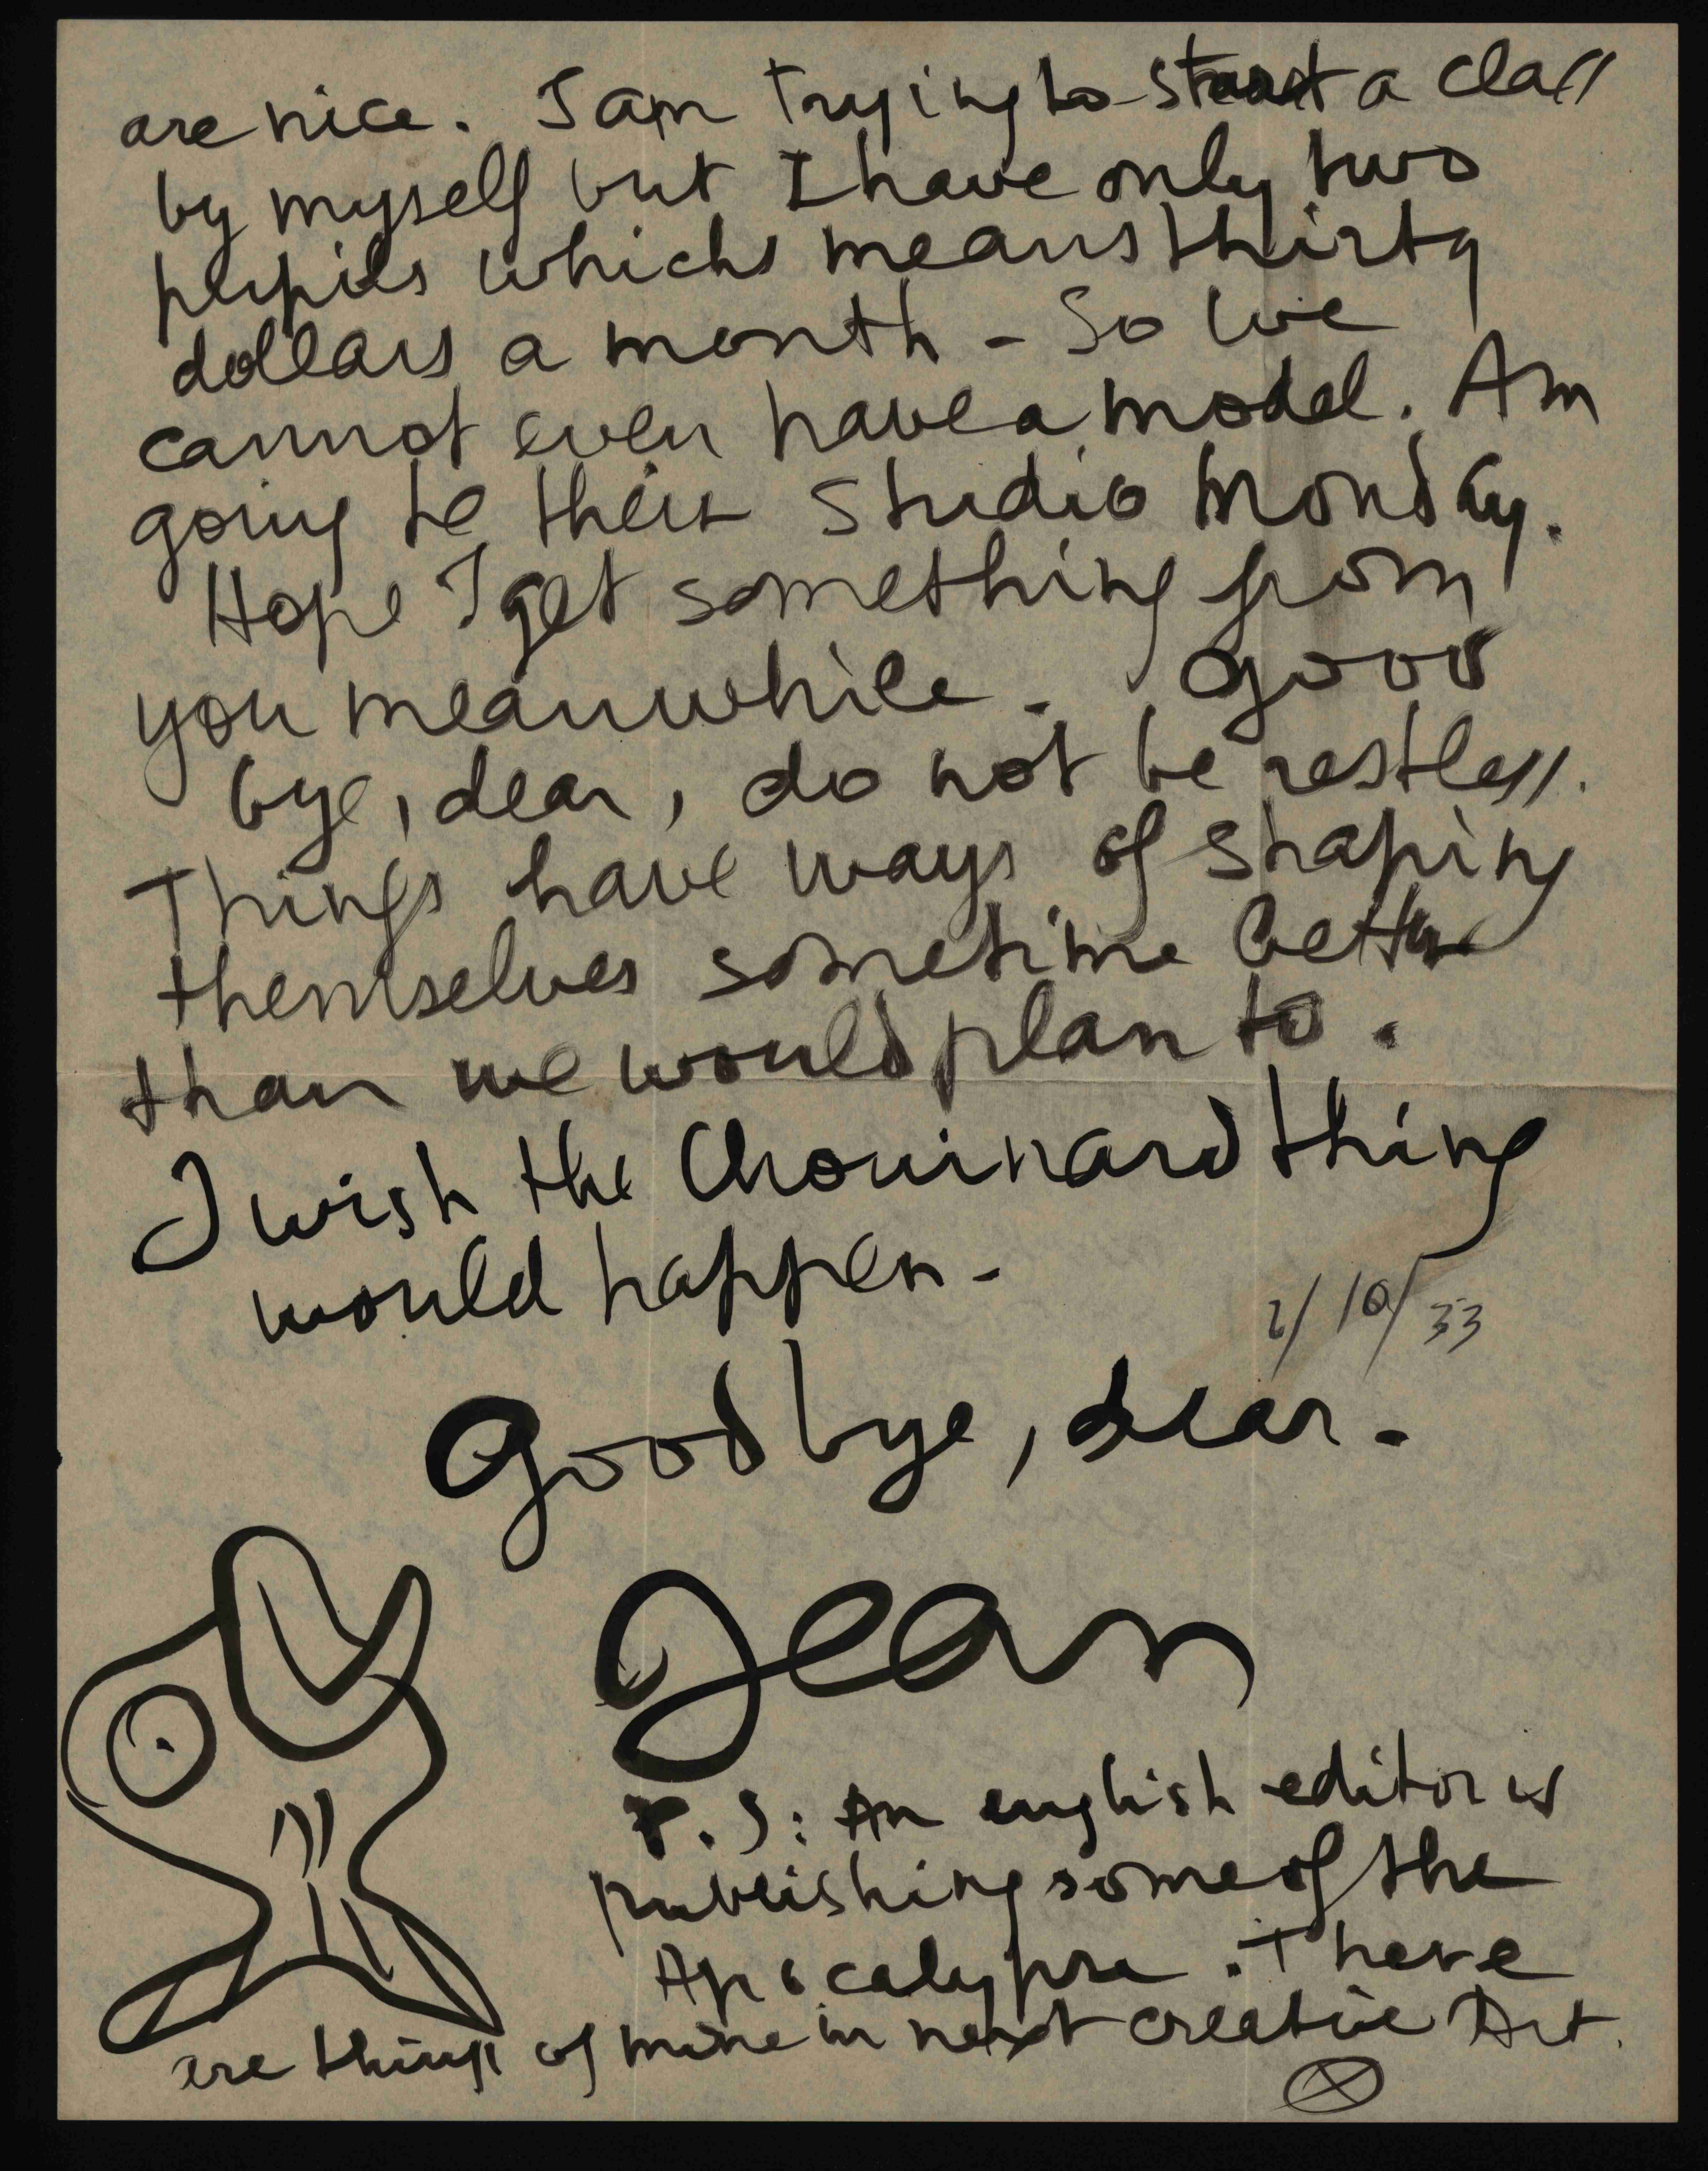 are nice. I am trying to start a class
by myself but I have only two
pupils which means thirty
dollars a month - So we
cannot even have a model. Am
going to their studio Monday.
Hope I get something from
you meanwhile. Good
bye, dear, do not be restless.
Things have ways of shaping
themselves sometime better
than we would plan to.
I wish the Chouinard thing
would happen -
2/10/33
Good bye, dear -
Jean
P.S: An english editor is
publishing some of the
Apocalypse. There
are things of mine in next creative Art.